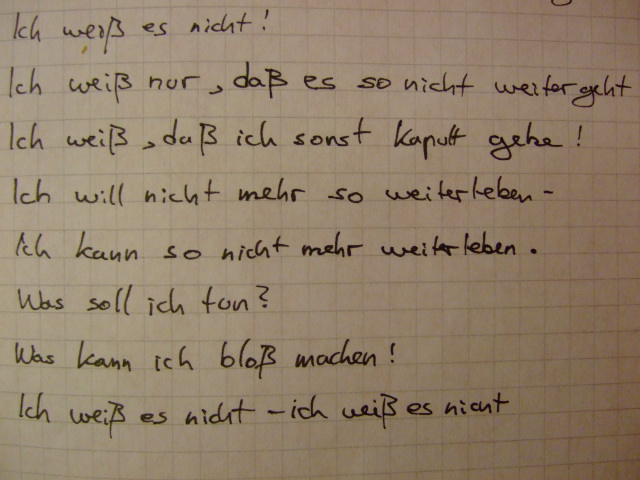 Ich weiß es nicht!
Ich weiß nur, daß es so nicht weitergeht
Ich weiß, daß ich sonst kaputt gehe!
Ich will nicht mehr so weiterleben -
Ich kann so nicht mehr weiterleben.
Was soll ich tun?
Was kann ich bloß machen!
Ich weiß es nicht - ich weiß es nicht